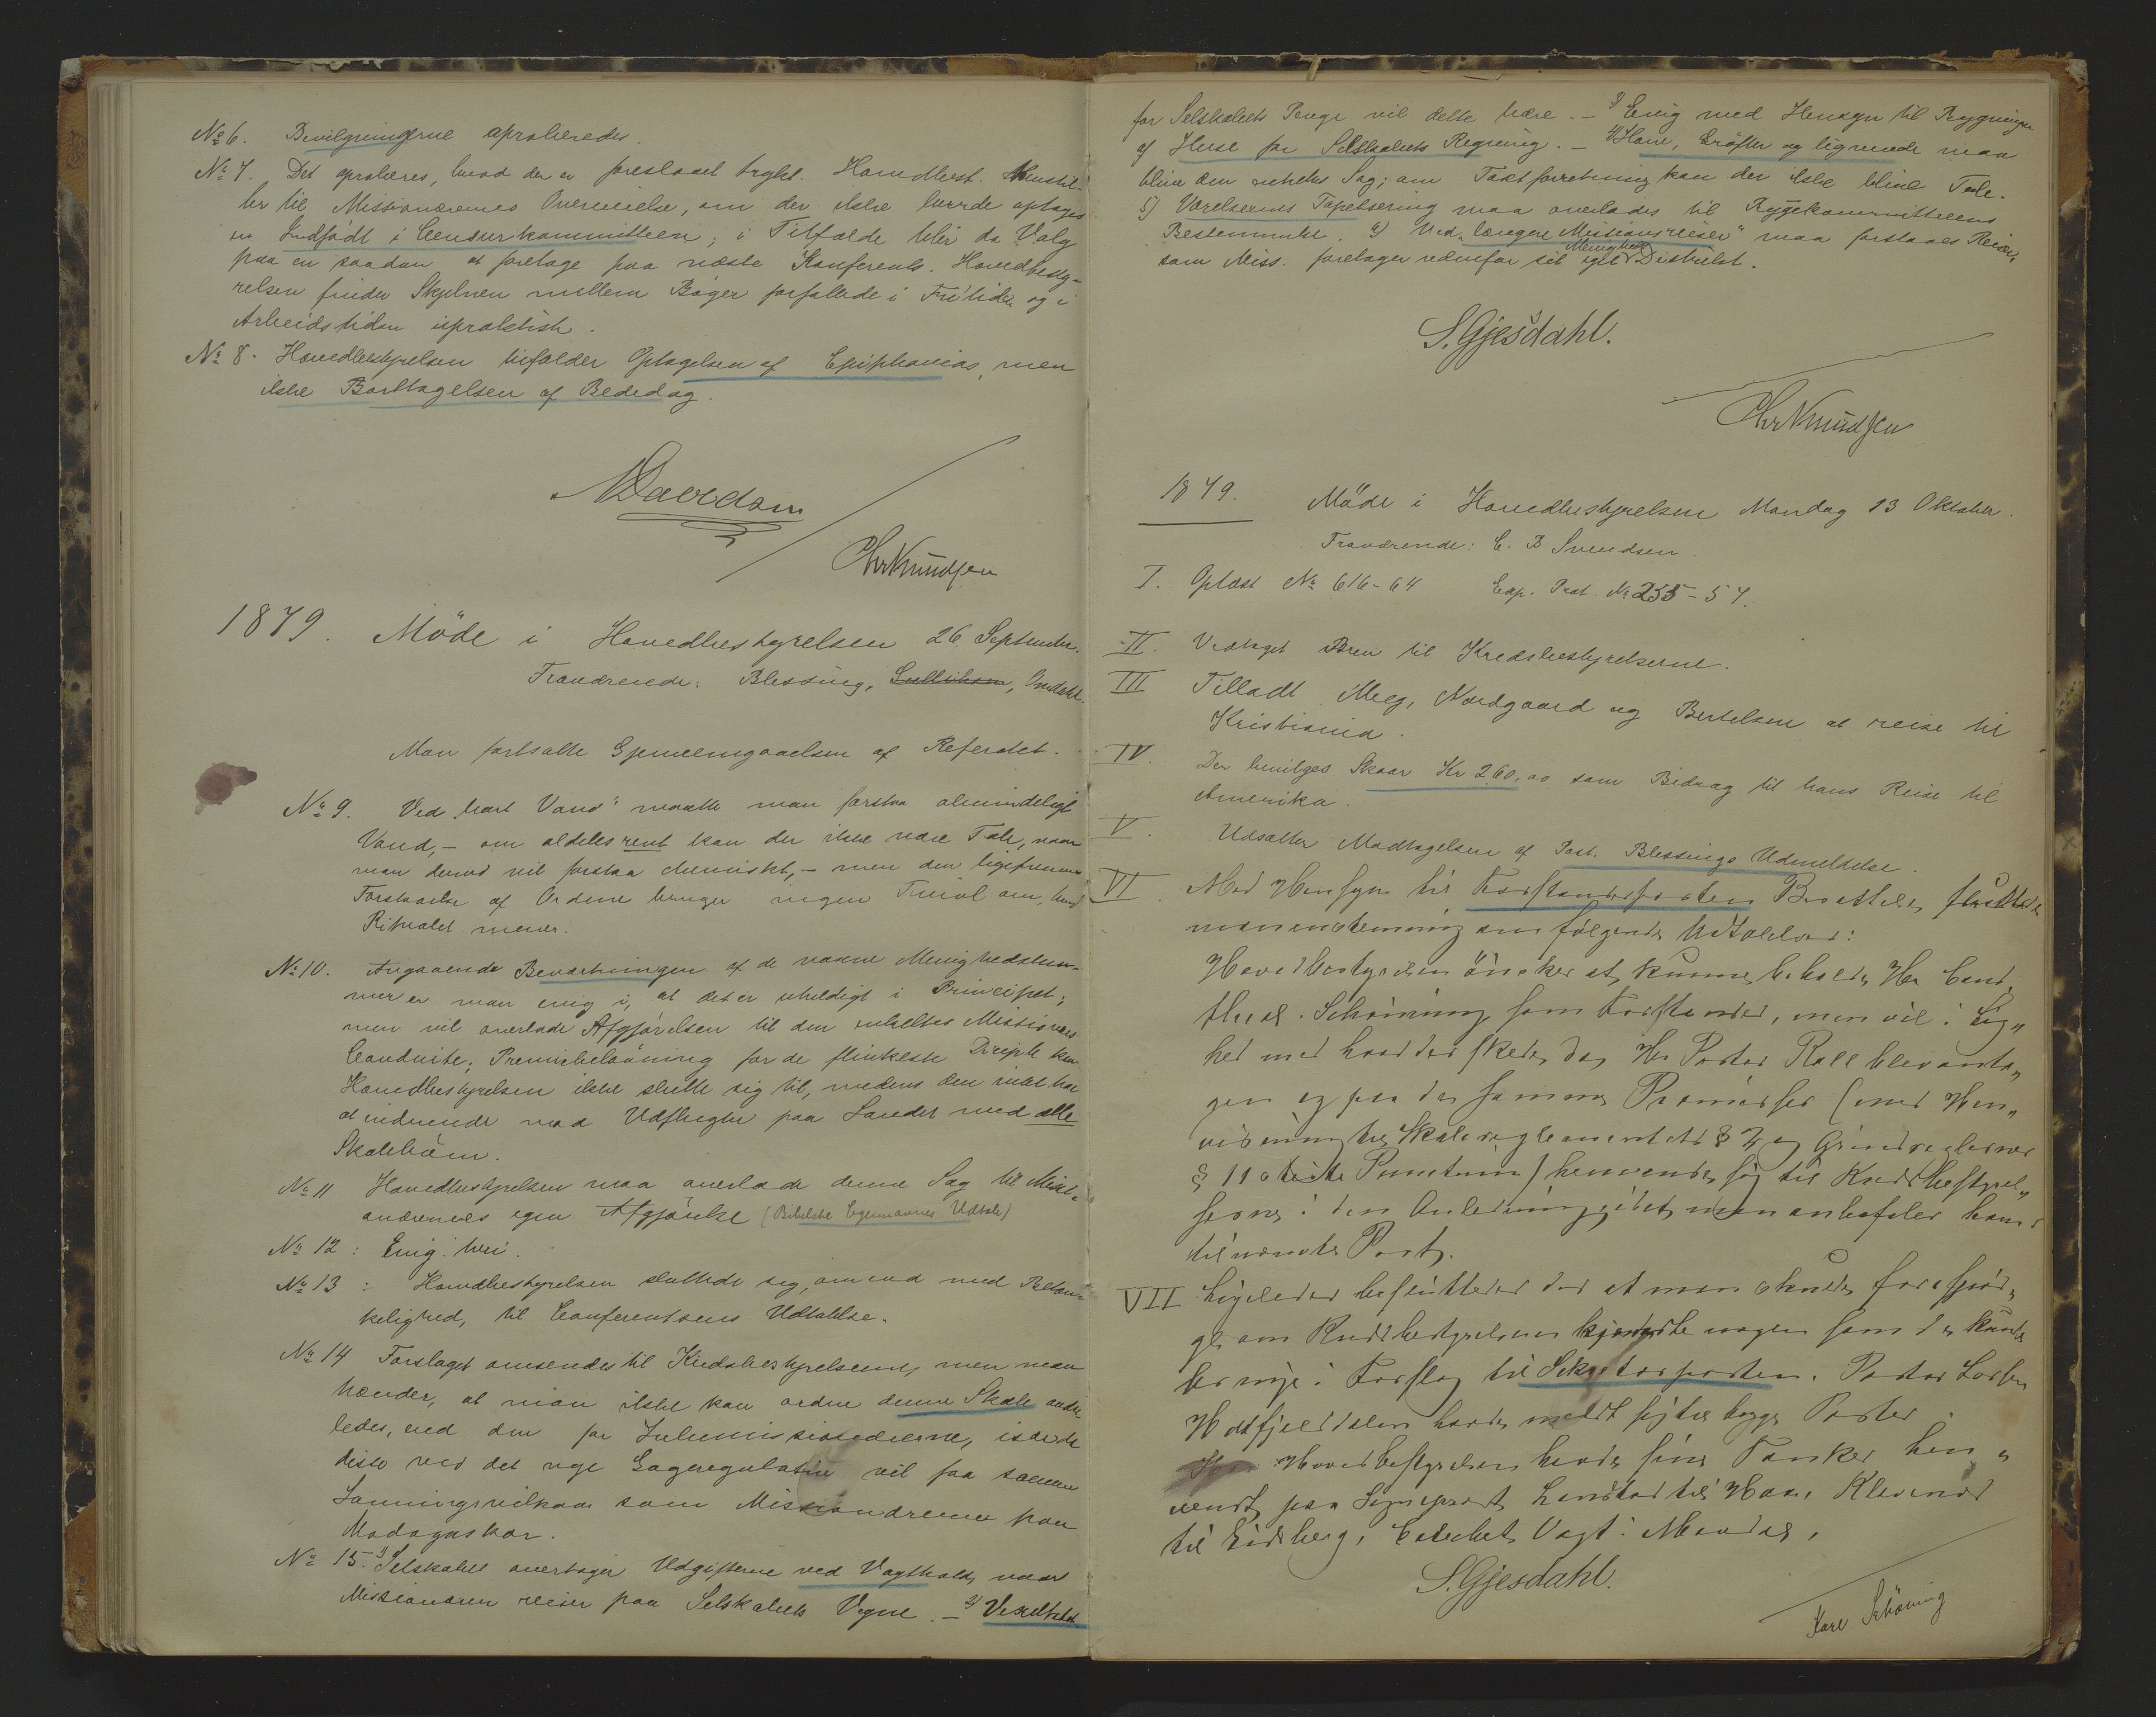 No 6. Bevilgningerne aproberedes.
No 7. Det aproberes, hvad der er foreslaaet trykt. Hovedbest. henstil-
ler til Missionærernes Overveielse, om der ikke burde optages
en Indfødt i Censurkommitteen; i Tilfælde blir da Valg
paa en saadan at foretage paa næste Konferents. Hovedbesty-
relsen finder Skjelnen mellem Bøger forfattede i Fritiden og i
Arbeidstiden upraktisk.
No 8. Hovedbestyrelsen bifalder Optagelsen af Epiphanias, men
ikke Borttagelsen af Bededag.
Chr Knudsen
1879. Möde i Hovedbestyrelsen 26 September.
Fraværende: Blessing, Omdahl.
Man fortsatte Gjennemgaaelsen af Referatet.
No 9. Ved "bart Vand" maatte man forstaa almindeligt
Vand, – om aldeles rent kan der ikke være Tale, naar
man derved vil forstaa chemisk, – men den ligefremme
Forstaaelse af Ordene bringer ingen Tvivl om, hvad
Ritualet mener.
No 10. Angaaende Beværtningen af de voxne Menighedslem-
mer er man enig i, at det er uheldigt i Principet;
men vil overlade Afgjörelsen til den enkeltes Missionærs
Conduite; Premiebelönning for de flinkeste Disciple kan
Hovedbestyrelsen ikke slutte sig til, medens den intet har
at indvende mod Udflugter paa Landet med alle
Skolebörn.
No 11 Hovedbestyrelsen maa overlade denne Sag til Missi-
onærernes egen Afgjörelse (Bibelske Egennavnes Udtale)
No 12: Enig heri.
No 13: Hovedbestyrelsen sluttede sig, omend med Betæn-
kelighed, til Conferentsens Udtalelse.
No 14 Forslaget omsendes til Kredsbestyrelserne, men man
at man ikke kan ordne denne Skole ander
ledes, end den for
disse ved det nye Gageregulativ vil faa samme
Lønningsvilkaar som Missionærerne paa
Madagaskar.
No 15. 1) Selskabet overtager Udgifterne ved Vagthold, naar
Missionæren reiser paa Selskabets Vegne. – 2)
for Selskabets Penge vil dette være. – 3) Enig med Hensyn til Bygningen
af Huse for Selskabets Regning. – 4) Have, Gröfter og lignende maa
blive den enkeltes Sag; om Taxtforretning kan der ikke blive Tale.
5) Værelsernes Tapetsering maa overlades til Byggekommitteens
Bestemmelse. 6) Ved "længere Missionsreiser" maa forstaaes Reiser,
som Miss. foretager udenfor sit eget Menigheds Distrikt.
S. Gjesdahl.
Chr Knudsen
1879. Möde i Hovedbestyrelsen Mandag 13 Oktober.
Fraværende: C. B Svendsen.
I. Oplæst No 616-64 Exp. Prot. No 255-57.
II. Vedtaget Brev til Kredsbestyrelserne.
III Tilladt Meeg, Nordgaard og Bertelsen at reise til
Kristiania.
IV. Der bevilges Skaar Kr 260,00 som Bidrag til hans Reise til
Amerika.
V. Udsætter Modtagelsen af Past. Blessings Udmeldelse.
VI. Med Hensyn til Forstanderposten
man enstemmig om følgende Udtalelse:
Hovedbestyrelsen önsker at kunne beholde Hr Cand.
theol. Schöning som Forstander, men vil i Lig„
hed med hvad der skede, da Hr Pastor Rall blev anta„
gen og paa de samme Præmisser (med Hen„
visning til Skolereglementets § 2 og Grundreglernes
§ 11 Punctum) henvende sig til Kredsbestyrel„
serne i den Anledning, idet man anbefaler ham
til nævnte Post.
VII Ligeledes besluttedes det at man skulde forespör„
ge om Kredsbestyrelserne kjendte nogen som de kunde
bringe i Forslag til Sekretærposten. Pastor
havde meldt sig til begge Poster.
Hovedbestyrelsen havde sine Tanker hen„
vendt paa Sogneprest
til Eidsberg, Catechet Vogt i Mandal.
S. Gjesdahl.
Karl Schöning